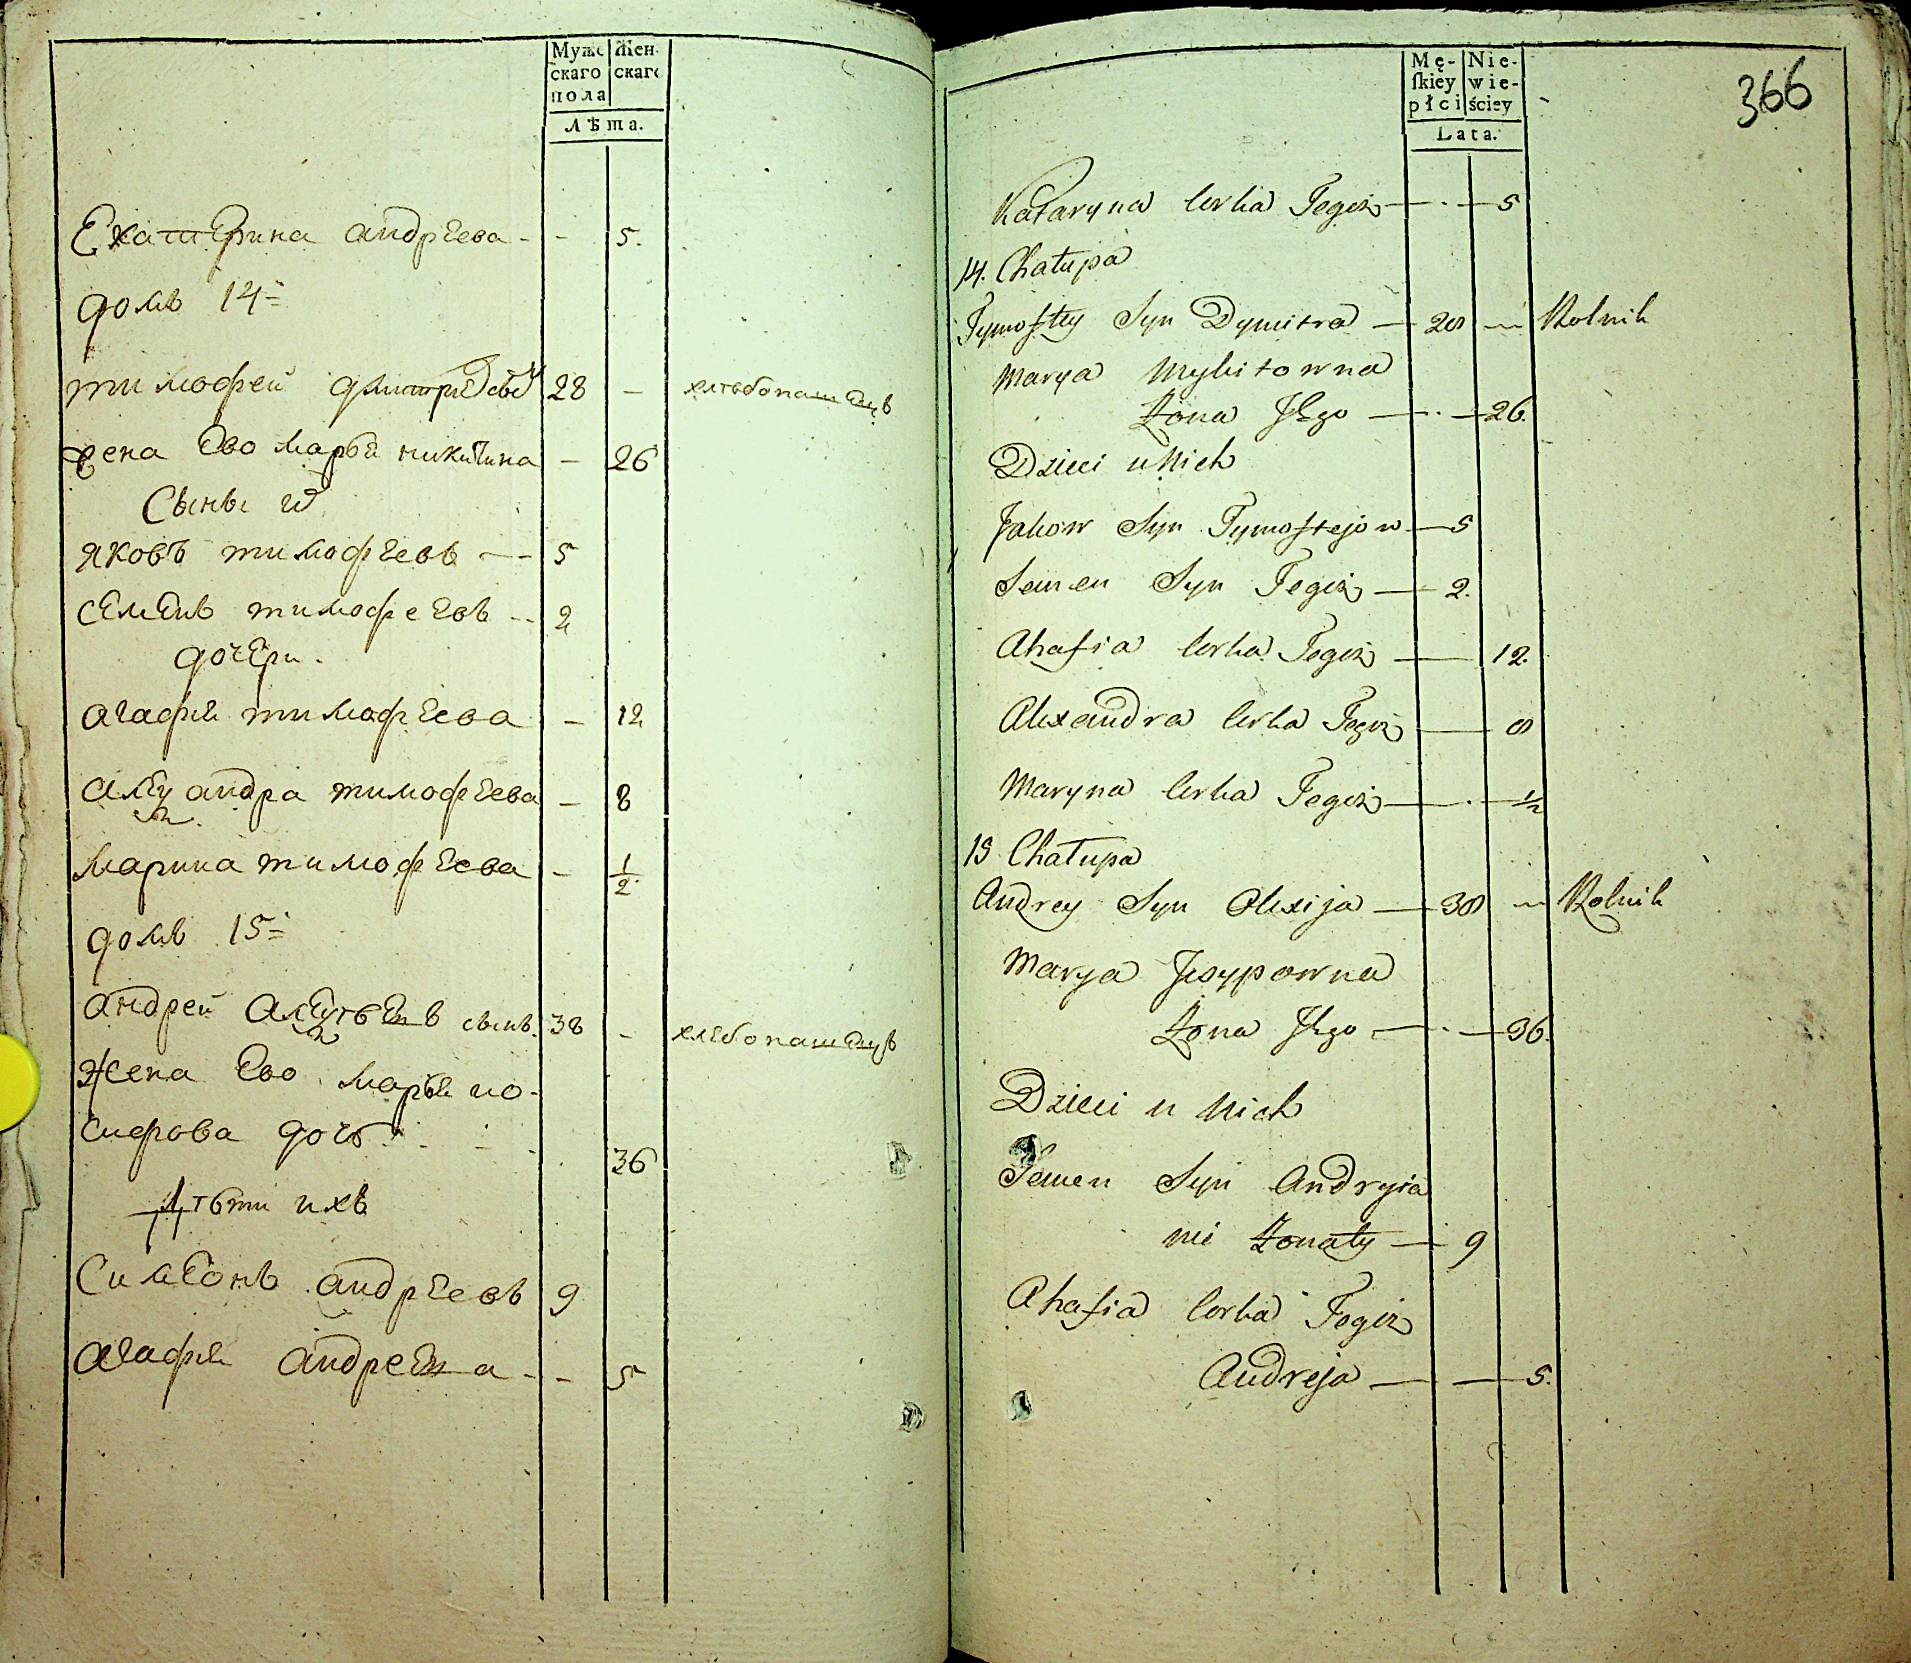 Муже Жен-
скаго скаго
пола
Лѣта.
Екатерина андреева - - 5.
домъ 14=
тимофей дмитриевъ 28 - хлѣбопашецъ
жена ево марья никитина - 26
Сыны
яковъ тимофеевъ — - 5
семенъ тимофеевъ - - 2
дочери.
агафия тимофеева - 12
александра тимофеева - 8
марина тимофеева - 1/2.
домъ 15=
андрей алексеевъ сынъ. 38 - хлебопашецъ
Жена ево марья ио-
сифова дочь
36
Дѣти ихъ
Симеонъ андреевъ 9
агафия андреева - - 5
366
Mę- Nie-
ſkiey wie-
płci ściey
Lata.
Kataryna Corka Tegoż — . — 5
14. Chałupa
Tymofiey Syn Dymitra — 28 — Rolnik
Marya Mykitowna
Żona Jego — . — 26.
Dzieci u Nich
Jakow Syn Tymofiejow — 5
Semen Syn Tegoż — 2.
Ahafia Corka Tegoż — 12.
Alexandra Corka Tegoż — 8
Maryna Corka Tegoż — . — 1/2
15 Chałupa
Andrey Syn Alexija — 38 — Rolnik
Marya Josypowna
Żona Jego — . — 36.
Dzieci u Nich
Semen Syn Andryia
nie Żonaty — 9
Ahafia Corka Tegoż
Andreja — — 5.